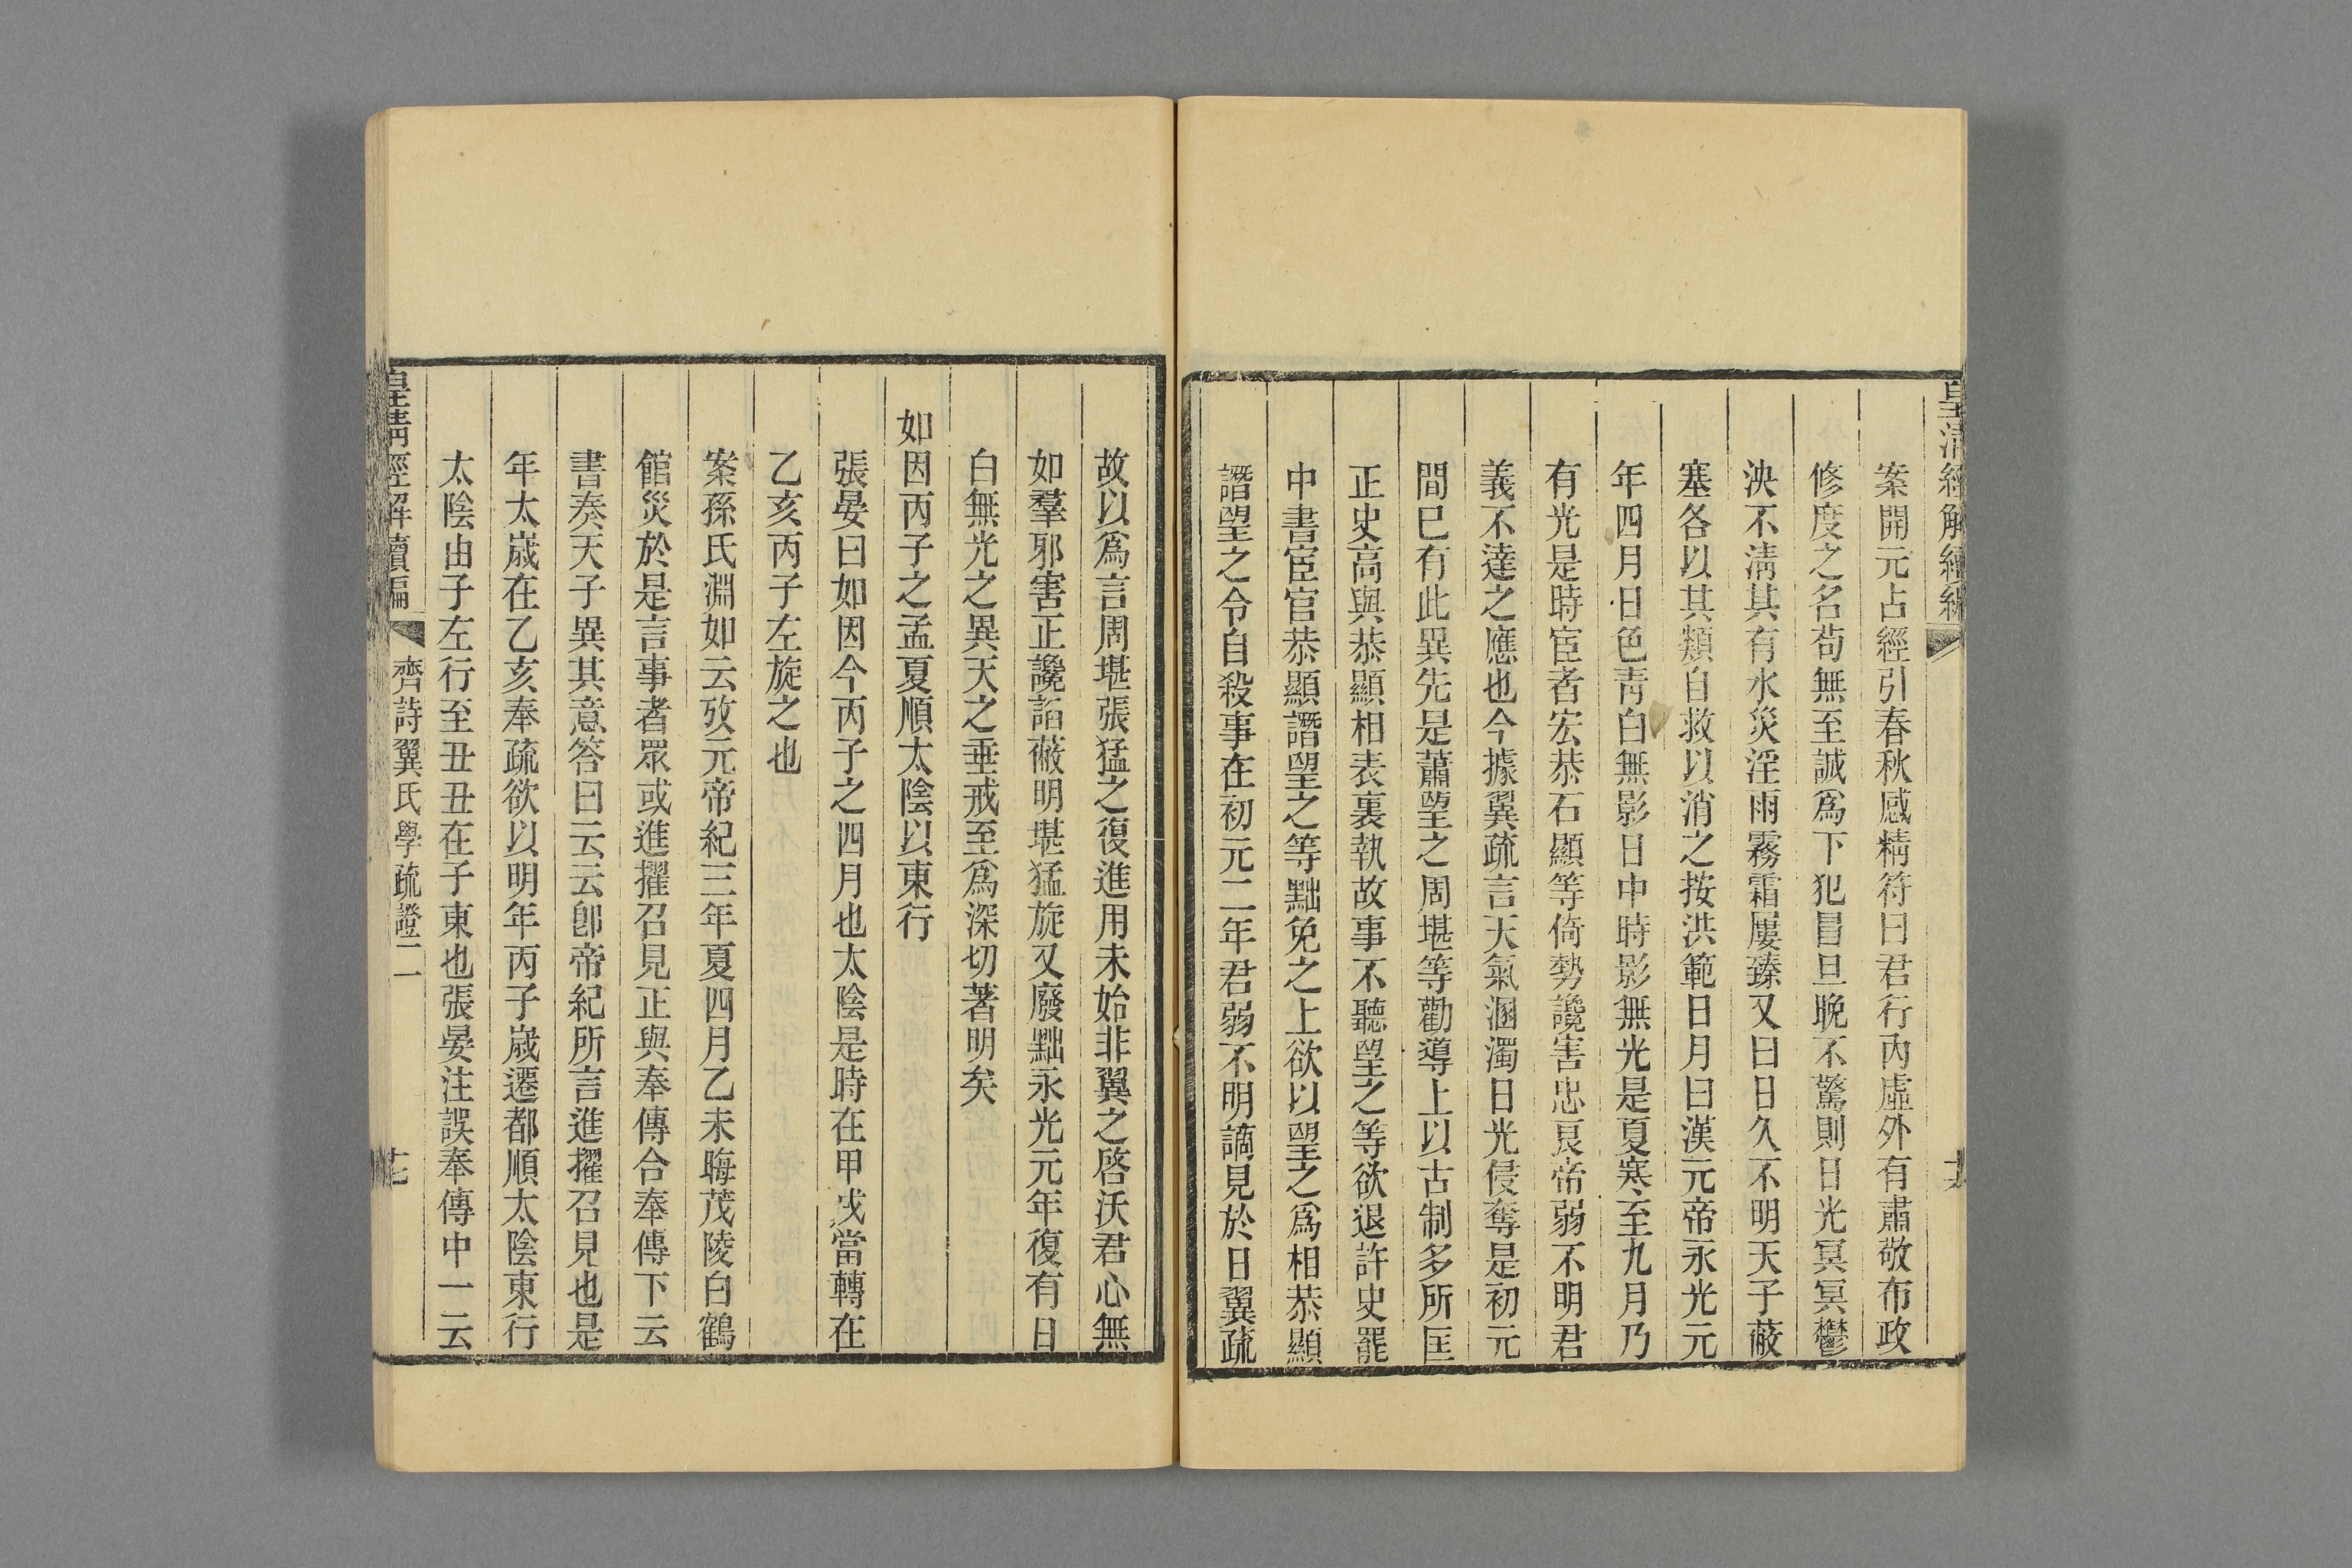 皇清經解續編
案開元占經引春秋感精符曰君行內虛外有肅敬布政
修度之名茍無至誠爲下犯冒旦晚不驚則日光冥冥鬱
泱不淸其有水災淫雨霧霜屢臻又曰日久不明天子蔽
塞各以其類自救以消之按洪範日月曰漢元帝永光元
年四月日色靑白無影日中時影無光是夏寒至九月乃
有光是時宦者宏恭石顯等倚勢讒害忠良帝弱不明君
義不達之應也今據翼疏言天氣溷濁日光侵奪是初元
間已有此異先是蕭望之周堪等勸導上以古制多所匡
正史高與恭顯相表裏執故事不聽望之等欲退許史罷
中書宦官恭顯譖望之等黜免之上欲以望之爲相恭顯
譖望之令自殺事在初元二年君弱不明謫見於日翼疏
故以爲言周堪張猛之復進用未始非翼之啓沃君心無
如羣邪害正讒諂蔽明堪猛旋又廢黜永光元年復有日
白無光之異天之垂戒至爲深切著明矣
如因丙子之孟夏順太陰以東行
張晏曰如因今丙子之四月也太陰是時在甲戌當轉在
乙亥丙子左旋之也
案孫氏淵如云攷元帝紀三年夏四月乙未晦茂陵白鶴
館災於是言事者眾或進擢召見正與奉傳合奉傳下云
書奏天子異其意答曰云云卽帝紀所言進擢召見也是
年太歲在乙亥奉疏欲以明年丙子歲遷都順太陰東行
太陰由子左行至丑丑在子東也張晏注誤奉傳中一云
皇淸經解續編 齊詩翼氏學疏證二